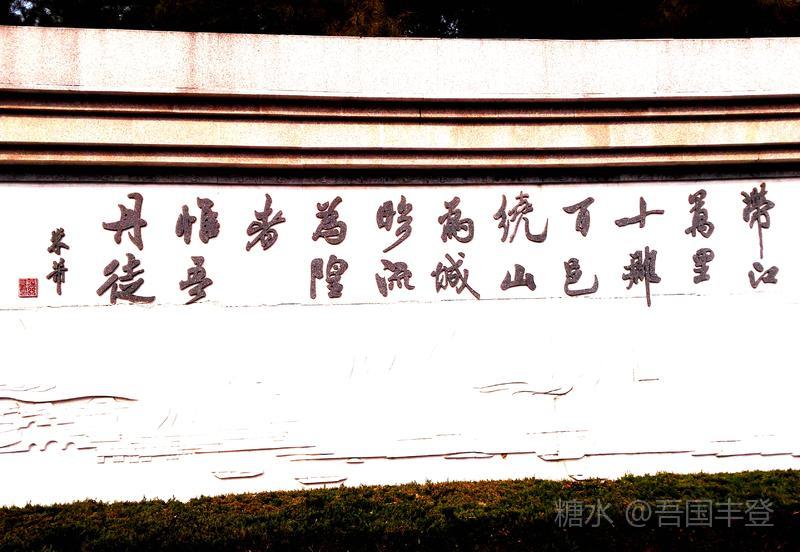 帶江
萬里
十郡
百邑
繞山
為城
臨流
為隍
者
惟吾
丹徒
米芾
糖水 @吾国丰登